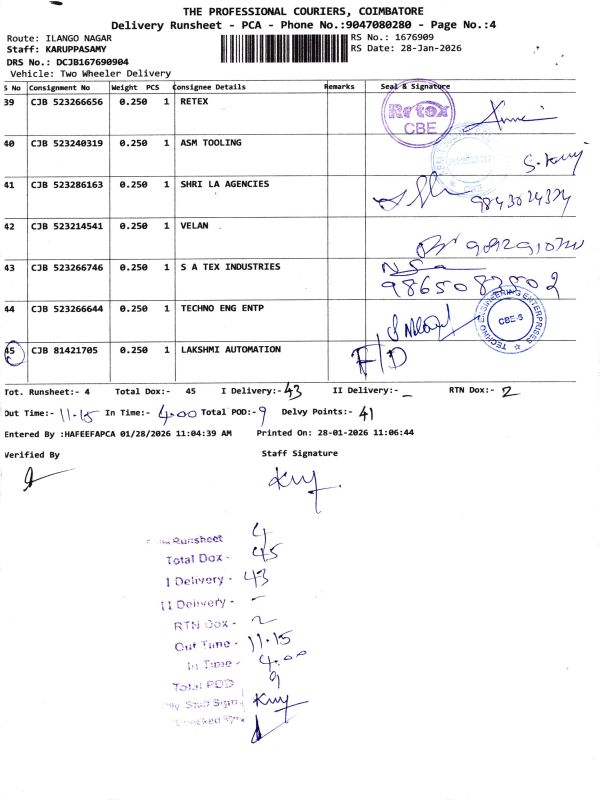 THE PROFESSIONAL COURIERS, COIMBATORE
Delivery Runsheet - PCA - Phone No.:9047080280 - Page No.:4
Route: ILANGO NAGAR
RS No.: 1676909
Staff: KARUPPASAMY
RS Date: 28-Jan-2026
DRS No.: DCJB167690904
Vehicle: Two Wheeler Delivery
S No Consignment No Weight PCS Consignee Details Remarks Seal & Signature
39 CJB 523266656 0.250 1 RETEX Retex CBE
40 CJB 523240319 0.250 1 ASM TOOLING
41 CJB 523286163 0.250 1 SHRI LA AGENCIES
42 CJB 523214541 0.250 1 VELAN
43 CJB 523266746 0.250 1 S A TEX INDUSTRIES
44 CJB 523266644 0.250 1 TECHNO ENG ENTP TECHNO ENGINEERING ENTERPRISES CBE-6
45 CJB 81421705 0.250 1 LAKSHMI AUTOMATION F/D
Tot. Runsheet:- 4 Total Dox:- 45 I Delivery:- 43 II Delivery:- - RTN Dox:- 2
Out Time:- 11.15 In Time:- 4.00 Total POD:- 9 Delvy Points:- 41
Entered By :HAFEEFAPCA 01/28/2026 11:04:39 AM Printed On: 28-01-2026 11:06:44
Verified By Staff Signature
Runsheet 4
Total Dox - 45
I Delivery - 43
II Delivery - -
RTN Dox - 2
Out Time - 11.15
In Time - 4.00
Total POD 9
Staff Sign